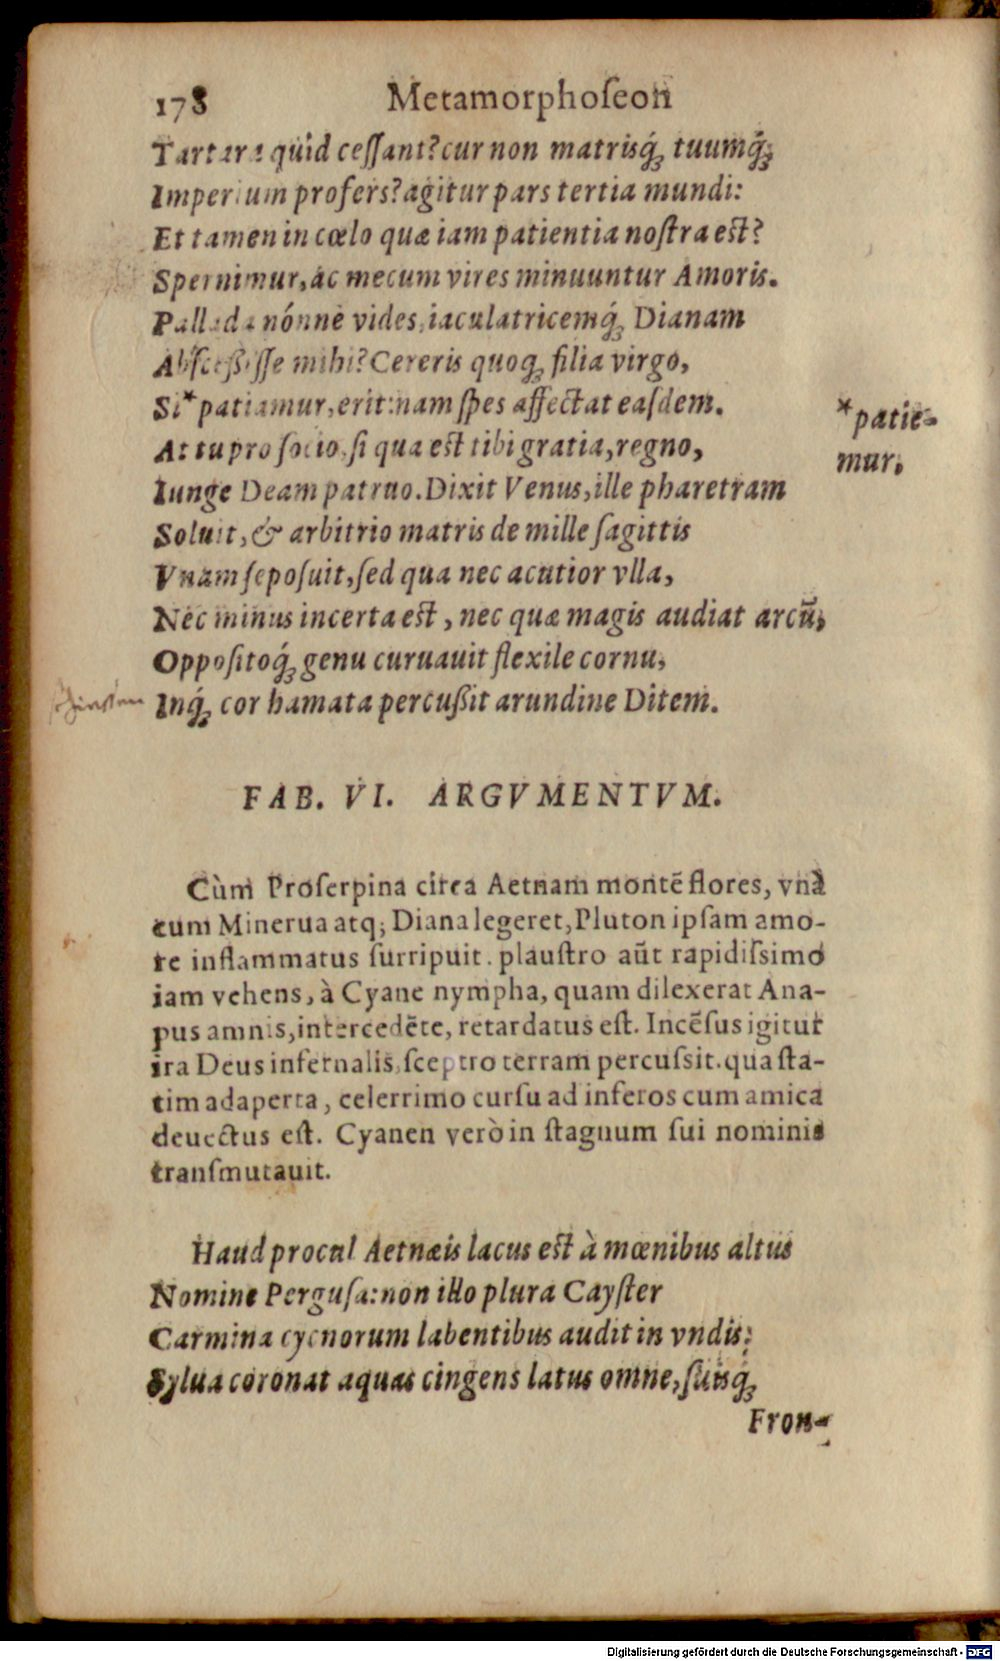 178 Metamorphoſeon
Tartara quid ceſſant? cur non matrisq́ꝫ tuumq́ꝫ
Imperium profers? agitur pars tertia mundi:
Et tamen in cœlo quæ iam patientia noſtra eſt?
Spernimur, ac mecum vires minuuntur Amoris.
Pallada nónne vides, iaculatricemq́ꝫ Dianam
Abſceßiſſe mihi? Cereris quoqꝫ filia virgo,
Si *patiamur, erit: nam ſpes affectat eaſdem.
*patie-
mur.
At tu pro ſocio, ſi qua eſt tibi gratia, regno,
Iunge Deam patruo. Dixit Venus, ille pharetram
Soluit, & arbitrio matris de mille ſagittis
Vnam ſepoſuit, ſed qua nec acutior vlla,
Nec minus incerta eſt, nec quæ magis audiat arcū,
Oppoſitoq́ꝫ genu curuauit flexile cornu,
Inq́ꝫ cor hamata percußit arundine Ditem.
FAB. VI. ARGVMENTVM.
Cùm Proſerpina circa Aetnam montē flores, vnà
cum Minerua atq; Diana legeret, Pluton ipſam amo-
re inflammatus ſurripuit. plauſtro aūt rapidiſsimo
iam vehens, à Cyane nympha, quam dilexerat Ana-
pus amnis, intercedēte, retardatus eſt. Incēſus igitur
ira Deus infernalis, ſceptro terram percuſsit. qua ſta-
tim adaperta, celerrimo curſu ad inferos cum amica
deuectus eſt. Cyanen verò in ſtagnum ſui nominis
tranſmutauit.
Haud procul Aetnæis lacus eſt à mœnibus altus
Nomine Perguſa: non illo plura Cayſter
Carmina cycnorum labentibus audit in vndis:
Sylua coronat aquas cingens latus omne, ſuisq́ꝫ
Fron-
Digitalisierung gefördert durch die Deutsche Forschungsgemeinschaft - DFG